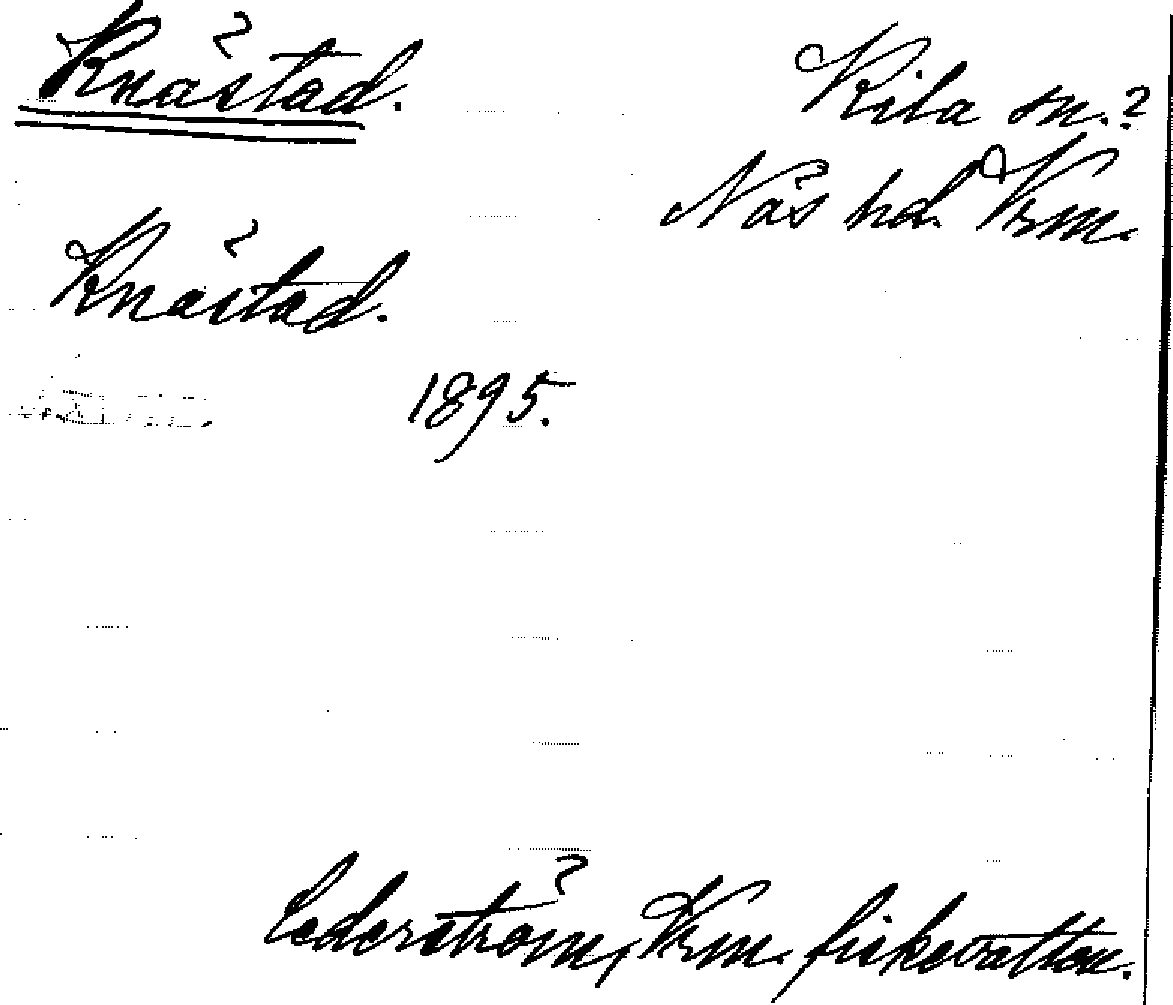 Knästad.
Kila sn.?
Näs hd. Vrm.
Knästad.
1895.
Cederström, Vrm. fiskevatten.